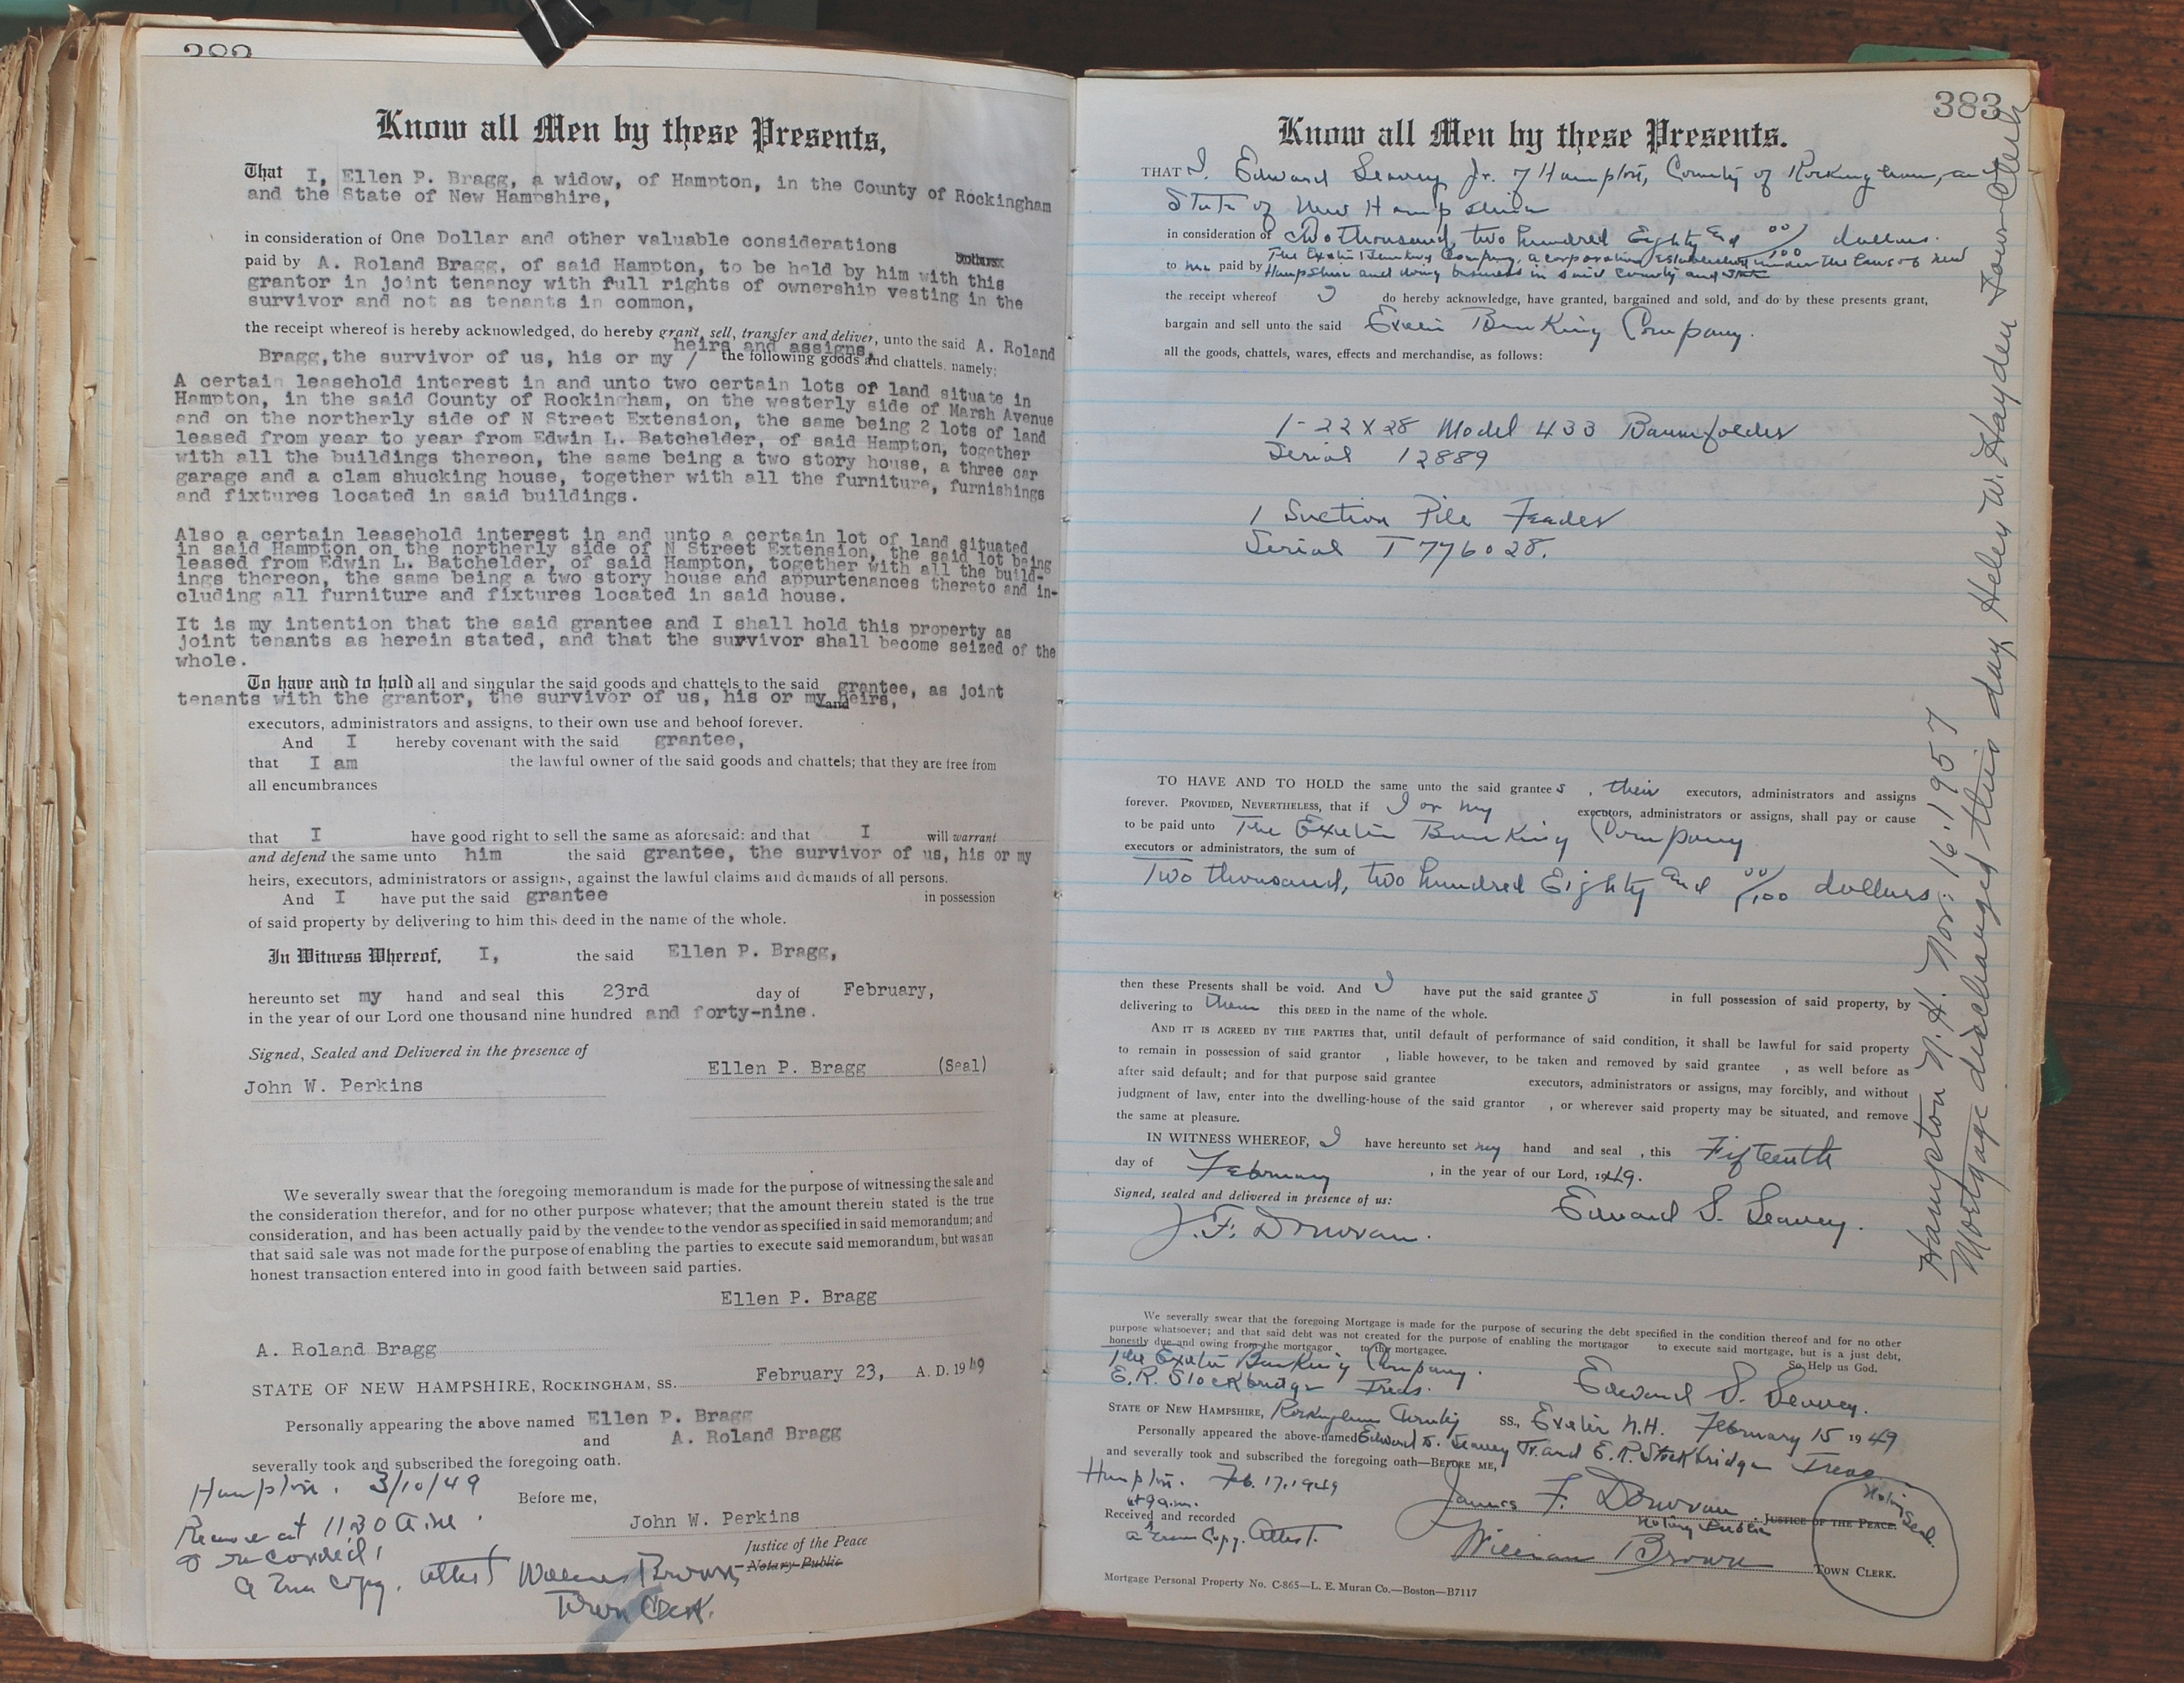 Know all Men by these Presents,
That I, Ellen P. Bragg, a widow, of Hampton, in the County of Rockingham
and the State of New Hampshire,
in consideration of One Dollar and other valuable considerations
paid by A. Roland Bragg, of said Hampton, to be held by him with this
grantor in joint tenancy with full rights of ownership vesting in the
survivor and not as tenants in common,
the receipt whereof is hereby acknowledged, do hereby grant, sell, transfer and deliver, unto the said A. Roland
heirs and assigns,
Bragg, the survivor of us, his or my / the following goods and chattels, namely;
A certain leasehold interest in and unto two certain lots of land situate in
Hampton, in the said County of Rockingham, on the westerly side of Marsh Avenue
and on the northerly side of N Street Extension, the same being 2 lots of land
leased from year to year from Edwin L. Batchelder, of said Hampton, together
with all the buildings thereon, the same being a two story house, a three car
garage and a clam shucking house, together with all the furniture, furnishings
and fixtures located in said buildings.
Also a certain leasehold interest in and unto a certain lot of land situated
in said Hampton on the northerly side of N Street Extension, the said lot being
leased from Edwin L. Batchelder, of said Hampton, together with all the build-
ings thereon, the same being a two story house and appurtenances thereto and in-
cluding all furniture and fixtures located in said house.
It is my intention that the said grantee and I shall hold this property as
joint tenants as herein stated, and that the survivor shall become seized of the
whole.
To have and to hold all and singular the said goods and chattels to the said grantee, as joint
tenants with the grantor, the survivor of us, his or my heirs,
and
executors, administrators and assigns, to their own use and behoof forever.
And I hereby covenant with the said grantee,
that I am the lawful owner of the said goods and chattels; that they are free from
all encumbrances
that I have good right to sell the same as aforesaid: and that I will warrant
and defend the same unto him the said grantee, the survivor of us, his or my
heirs, executors, administrators or assigns, against the lawful claims and demands of all persons.
And I have put the said grantee in possession
of said property by delivering to him this deed in the name of the whole.
In Witness Whereof, I, the said Ellen P. Bragg,
hereunto set my hand and seal this 23rd day of February,
in the year of our Lord one thousand nine hundred and forty-nine.
Signed, Sealed and Delivered in the presence of
Ellen P. Bragg (Seal)
John W. Perkins
We severally swear that the foregoing memorandum is made for the purpose of witnessing the sale and
the consideration therefor, and for no other purpose whatever; that the amount therein stated is the true
consideration, and has been actually paid by the vendee to the vendor as specified in said memorandum; and
that said sale was not made for the purpose of enabling the parties to execute said memorandum, but was an
honest transaction entered into in good faith between said parties.
Ellen P. Bragg
A. Roland Bragg
STATE OF NEW HAMPSHIRE, ROCKINGHAM, SS. February 23, A. D. 1949
Personally appearing the above named Ellen P. Bragg
and A. Roland Bragg
severally took and subscribed the foregoing oath.
Hampton. 3/10/49
Before me,
John W. Perkins
Justice of the Peace
Notary Public
at 11:30 A.M.
& recorded,
A True Copy. Attest William Brown,
Town Clerk.
383
Know all Men by these Presents.
THAT I, Edward Seavey Jr. of Hampton, County of Rockingham, and
State of New Hampshire
in consideration of Two thousand, two hundred Eighty and 00/100 dollars.
to me paid by The Exeter Banking Company, a corporation established under the laws of New
Hampshire and doing business in said County and State
the receipt whereof I do hereby acknowledge, have granted, bargained and sold, and do by these presents grant,
bargain and sell unto the said Exeter Banking Company.
all the goods, chattels, wares, effects and merchandise, as follows:
1-22 X 28 Model 433 Baumfolder
Serial 12889
1 Suction Pile Feeder
Serial T 776028.
TO HAVE AND TO HOLD the same unto the said grantees, their executors, administrators and assigns
forever. PROVIDED, NEVERTHELESS, that if I or my executors, administrators or assigns, shall pay or cause
to be paid unto The Exeter Banking Company
executors or administrators, the sum of
Two thousand, two hundred Eighty and 00/100 dollars
then these Presents shall be void. And I have put the said grantees in full possession of said property, by
delivering to them this DEED in the name of the whole.
AND IT IS AGREED BY THE PARTIES that, until default of performance of said condition, it shall be lawful for said property
to remain in possession of said grantor , liable however, to be taken and removed by said grantee , as well before as
after said default; and for that purpose said grantee executors, administrators or assigns, may forcibly, and without
judgment of law, enter into the dwelling-house of the said grantor , or wherever said property may be situated, and remove
the same at pleasure.
IN WITNESS WHEREOF, I have hereunto set my hand and seal , this Fifteenth
day of February , in the year of our Lord, 1949.
Signed, sealed and delivered in presence of us:
Edward S. Seavey.
J. F. Donovan.
We severally swear that the foregoing Mortgage is made for the purpose of securing the debt specified in the condition thereof and for no other
purpose whatsoever; and that said debt was not created for the purpose of enabling the mortgagor to execute said mortgage, but is a just debt,
honestly due and owing from the mortgagor to the mortgagee.
So Help us God.
The Exeter Banking Company.
E. R. Stockbridge Treas. Edward S. Seavey.
STATE OF NEW HAMPSHIRE, Rockingham County SS., Exeter N.H. February 15 1949
Personally appeared the above-named Edward S. Seavey Jr. and E. R. Stockbridge Treas.
and severally took and subscribed the foregoing oath—BEFORE ME,
Hampton. Feb. 17, 1949
at 9 a.m.
James F. Donovan JUSTICE OF THE PEACE.
Notary Public
Notary Seal.
Received and recorded
A True Copy. Attest.
William Brown TOWN CLERK.
Mortgage Personal Property No. C-865—L. E. Muran Co.—Boston—B7117
Hampton N. H. Nov. 16 · 1957
Mortgage discharged this day Helen W. Hayden Town Clerk